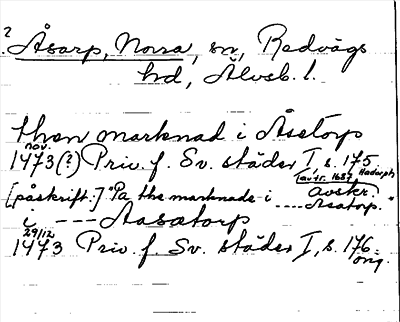 ? Åsarp, Norra, sn, Redvägs
hd, Älvsb. l.
then marknad i Åsatorp
nov.
1473(?) Priv. f. Sv. städer I, s. 175.
[avtr. 1687, Hadorph]
[påskrift:] "Pa the marknade i ---- Asatorp." avskr.
i ---- Aasatorp
29/12
1473 Priv. f. Sv. städer I, s. 176.
orig.